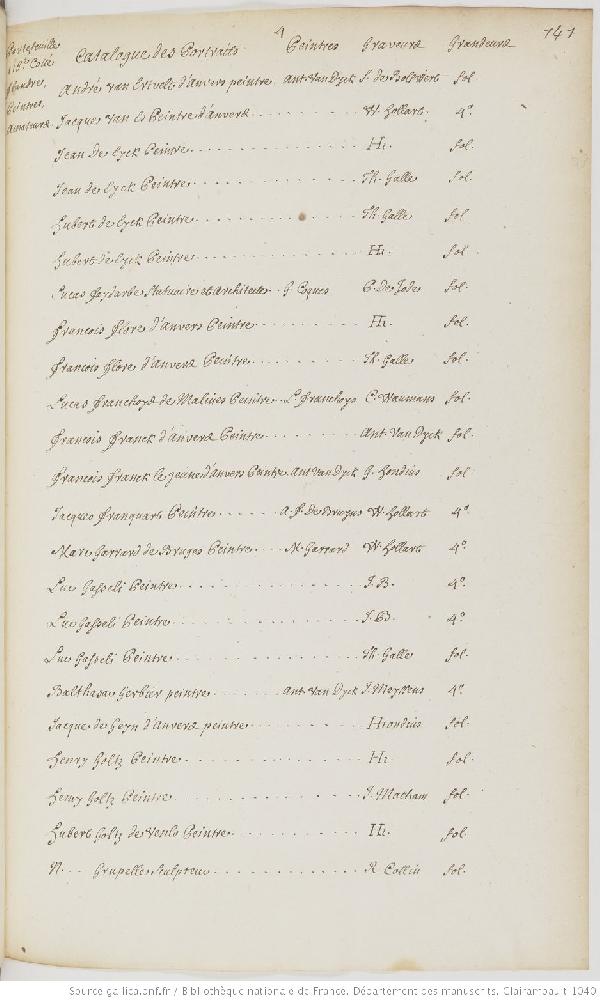 4
741
Portefeuille
Flandre,
Peintres,
Catalogue des Portraits Peintres Graveurs Grandeurs
André van Ertvelt d'Anvers peintre Ant. Van Dyck S. de Bolswert fol.
Jacques van Es Peintre d'anvers W. Hollart. 4°.
Jean de Eyck Peintre H. fol.
Jean de Eyck Peintre Th. Galle fol.
Hubert de Eyck Peintre Th. Galle fol.
Hubert de Eyck Peintre H. fol.
Lucas faydarbe Statuaire et Architecte G. Coques P. De Jode fol.
françois flore d'Anvers Peintre H. fol.
françois flore d'anvers Peintre Th. Galle fol.
Lucas franchoys de Malines Peintre L. franchoys C. Waumans fol.
françois franck d'anvers Peintre Ant. Van Dyck fol.
françois franck le jeune d'anvers Peintre Ant. van Dyck G. Hondius fol.
Jacques franquart Peintre W. Hollart 4°.
Marc Garrard de Bruges Peintre M. Garrard W. Hollart 4°.
Luc Gasseli Peintre J. B. 4°.
Luc Gasseli Peintre J. B. 4°.
Luc Gasseli Peintre Th. Galle fol.
Balthasar Gerbier peintre Ant. van Dyck J. Meyssens 4°.
Jacque de Geyn d'anvers peintre Hondius fol.
Henry Goltz Peintre H. fol.
Henry Goltz Peintre J. Matham fol.
Hubert Goltz de Venlo Peintre H. fol.
N... Grupelle Sculpteur R. Collin fol.
Source gallica.bnf.fr / Bibliothèque nationale de France. Département des manuscrits. Clairambault 1040